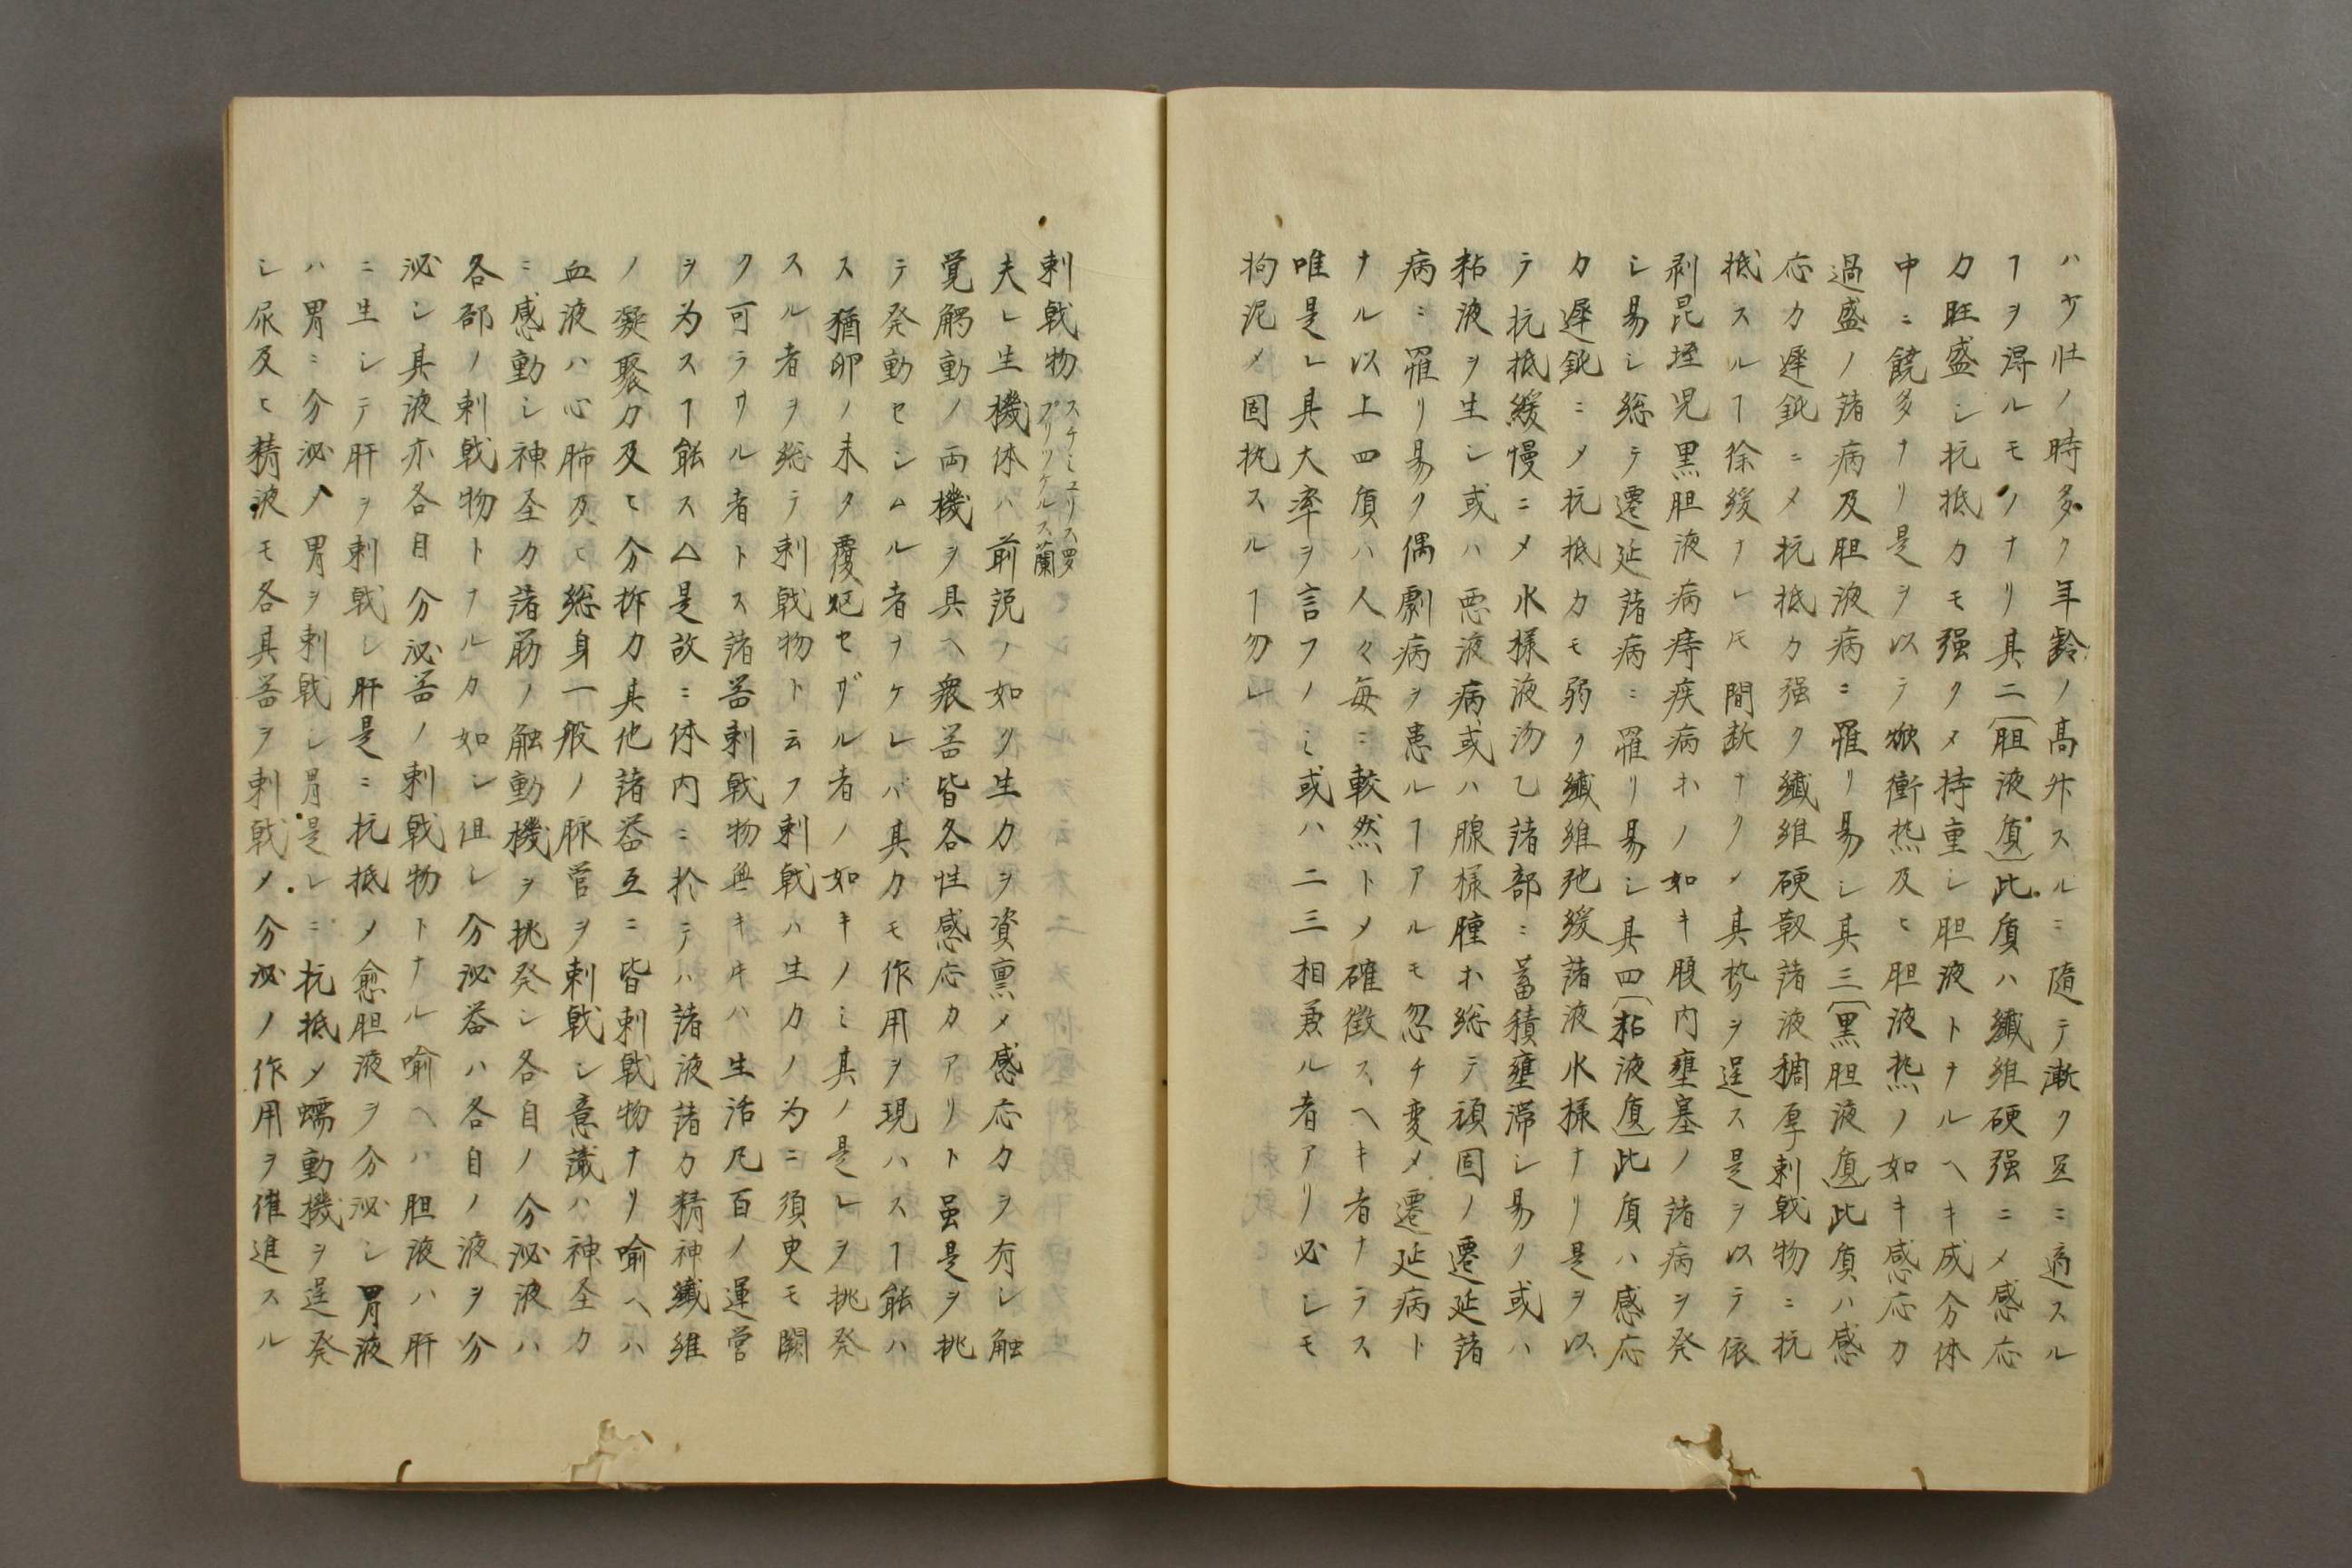 ハ少壮ノ時多ク年齢ノ高舛スルニ随テ漸ク互ニ適スル
ヿヲ得ルモノナリ其二〔胆液質〕此質ハ纎維硬强ニメ感応
力旺盛シ抗抵力モ强クメ持重シ胆液トナルヘキ成分体
中ニ饒多ナリ是ヲ以テ焮衝熱及ヒ胆液熱ノ如キ感応力
過盛ノ諸病及胆液病ニ罹リ易シ其三〔黒胆液質〕此質ハ感
応力遅鈍ニメ抗抵力强ク纎維硬靱諸液稠厚刺戟物ニ抗
抵スルヿ徐緩ナレ𪜈間断ナクメ其勢ヲ逞ス是ヲ以テ依
剥昆垤児黒胆液病痔疾病ホノ如キ腹内壅塞ノ諸病ヲ発
シ易シ総テ遷延諸病ニ罹リ易シ其四〔粘液質〕此質ハ感応
力遅鈍ニメ抗抵力モ弱ク纎維弛緩諸液水様ナリ是ヲ以
テ抗抵緩慢ニメ水様液汤乙諸部ニ蓄積壅滞シ易ク或ハ
粘液ヲ生シ或ハ悪液病或ハ腺様腫ホ総テ頑固ノ遷延諸
病ニ罹リ易ク偶劇病ヲ患ルヿアルモ忽チ変メ遷延病ト
ナル以上四質ハ人々毎ニ較然トメ確徴スヘキ者ナラス
唯是レ其大率ヲ言フノミ或ハ二三相兼ル者アリ必シモ
拘泥メ固执スルヿ勿レ
刺戟物 スチミュリス羅 プリッケルス蘭
夫レ生機体ハ前説ノ如ク生力ヲ資禀メ感応力ヲ有シ触
覚觸動ノ両機ヲ具ヘ衆器皆各性感応力アリト虽是ヲ挑
テ発動セシムル者ナケレバ其力モ作用ヲ現ハスヿ能ハ
ス猶卵ノ未タ覆煦セザル者ノ如キノミ其ノ是レヲ挑発
スル者ヲ総テ刺戟物ト云フ刺戟ハ生力ノ为ニ須臾モ闕
ク可ラサル者トス諸器刺戟物無キキハ生活凡百ノ運営
ヲ为スヿ能ス△是故ニ体内ニ於テハ諸液諸力精神纎維
ノ凝聚力及ヒ分拆力其他諸器互ニ皆刺戟物ナリ喩ヘハ
血液ハ心肺及ヒ総身一般ノ脈管ヲ刺戟シ意識ハ神圣カ
ニ感動シ神圣カ諸筋ノ触動機ヲ挑発シ各自ノ分泌液ハ
各部ノ刺戟物トナルカ如シ但シ分泌器ハ各自ノ液ヲ分
泌シ其液亦各自分泌器ノ刺戟物トナル喩ヘハ胆液ハ肝
ニ生シテ肝ヲ刺戟シ肝是ニ抗抵メ愈胆液ヲ分泌シ胃液
ハ胃ニ分泌メ胃ヲ刺戟シ胃是レニ抗抵メ蠕動機ヲ逞発
シ尿及ヒ精液モ各其器ヲ刺戟メ分泌ノ作用ヲ催進スル